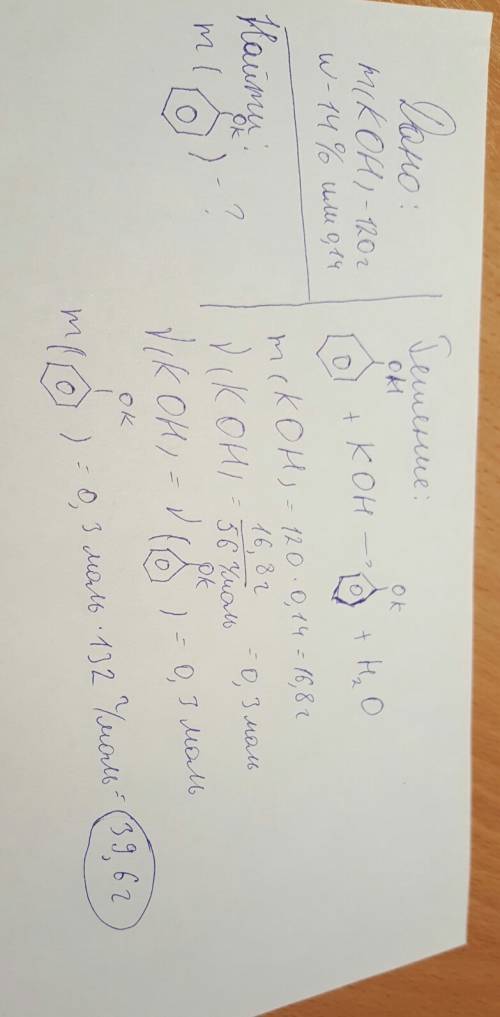 Дано:
m(KOH) - 120г
w - 14% или 0,14
Найти:
m( OK ) - ?
Решение:
OH + KOH → OK + H₂O
m(KOH) = 120 · 0,14 = 16,8г
√(KOH) = 16,8г / 56 г/моль = 0,3 моль
√(KOH) = √( OK ) = 0,3 моль
m( OK ) = 0,3 моль · 132 г/моль = 39,6г